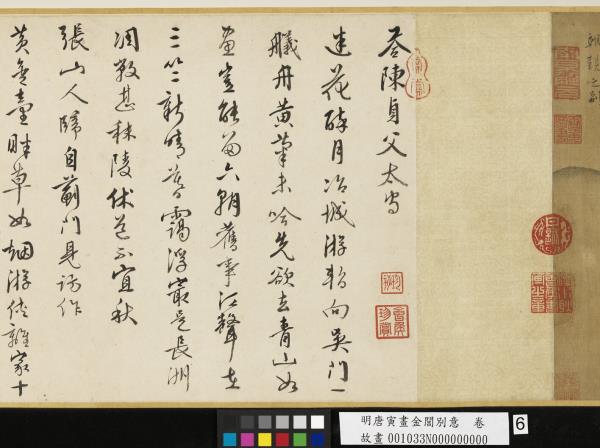 答陳貞父太守
迷花醉月冶城游轉向吳門一
艤舟黃葉未吟先欲去青山如
畫豈能留六朝舊事江聲在
三竺新晴暮靄浮最是長洲
凋敝甚秣陵休道不宜秋
張山人歸自薊門見訪作
黃金臺畔草如烟游俠離家十
明唐寅畫金閶別意 卷
故畫 001033N000000000
6